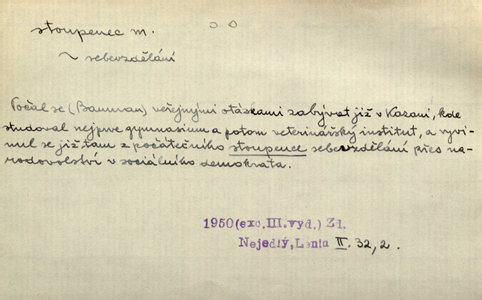 stoupenec m.
~ sebevzdělání
Počal se (Bauman) veřejnými otázkami zabývat již v Kazani, kde
studoval nejprve gymnasium a potom veterinářský institut, a vyvi-
nul se již tam z počátečního stoupence sebevzdělání přes na-
rodovolství v sociálního demokrata.
1950 (exc. III. vyd.) Zd.
Nejedlý, Lenin II. 32, 2.